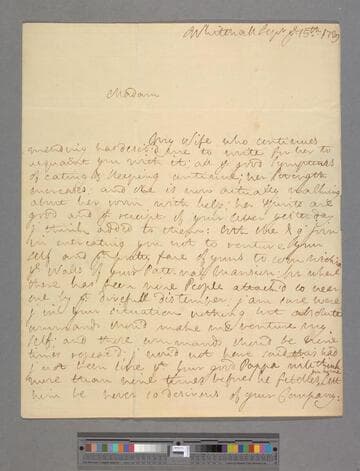 Whitehall Sepr ye 15th 1739
Madam
My Wife who continues
mending has desired me to write for her to
acquaint you with it: all ye good symptoms
of eating & sleeping continue; her strength
increases; and she is now actually walking
about her room with help; her spirits are
good and ye receipt of your letter yesterday
I think added to them: both she & I join
in intreating you not to venture your
self and
of yours to come within
ye Walls of your Paternal Mansion; for where
there has been nine People attack'd so near
one by ye direfull distemper; I am sure were
I in your situation nothing but absolute
commands should make me venture my
self; and those commands should be three
times repeated; I would not have said this had
I not been sure ye your good Pappa will think
more than nine times before he settles, let
him be never so desirous of your Company: